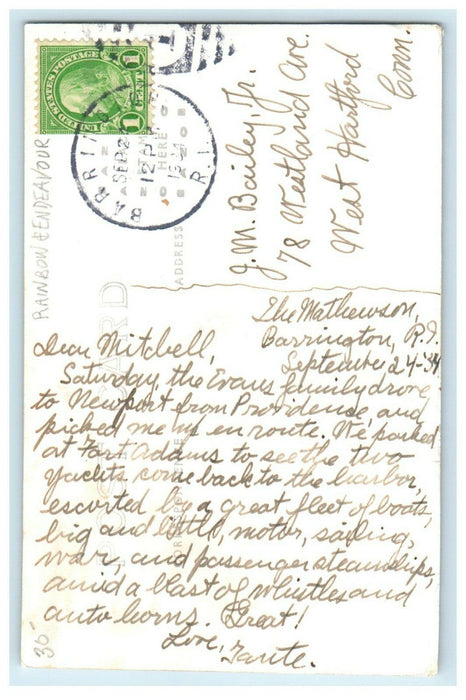 UNITED STATES POSTAGE
1 CENT 1
BARRINGTON
SEP 2
12 P
1934
R.I.
PLACE
STAMP
HERE
RAINBOW & ENDEAVOUR
POST CARD
ADDRESS
CORRESPONDENCE
J. M. Bailey, Jr.
78 Westland Ave.
West Hartford
Conn.
The Mathewson,
Barrington, R.I.
September 24-'34
Dear Mitchell,
Saturday the Evans family drove
to Newport from Providence, and
picked me up en route. We parked
at Fort Adams to see the two
yachts come back to the harbor,
escorted by a great fleet of boats,
big and little, motor, sailing,
war, and passenger steamships,
amid a blast of whistles and
auto horns. Great!
Love, Tante.
30-